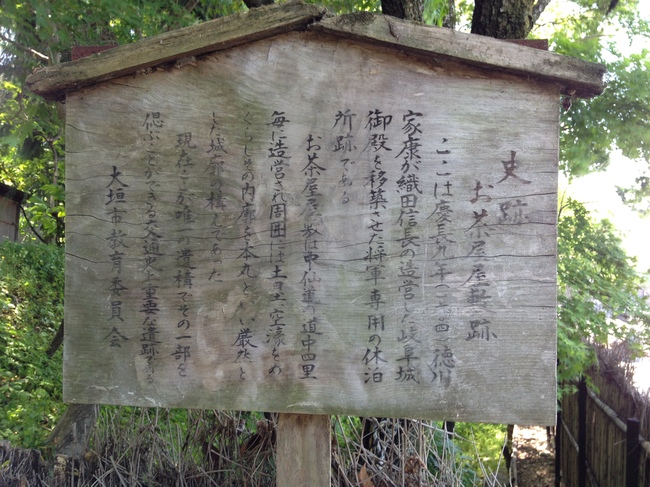 史跡
お茶屋屋敷跡
ここは慶長九年(一六〇四)徳川
家康が織田信長の造営した岐阜城
御殿を移築させた将軍専用の休泊
所跡である
お茶屋屋敷は中仙道の道中四里
毎に造営され周囲には土塁、空濠をめ
ぐらしその内郭を本丸といい厳然と
した城郭の構えであった
現在ここが唯一の遺構でその一部を
偲ぶことができる交通史上重要な遺跡である
大垣市教育委員会